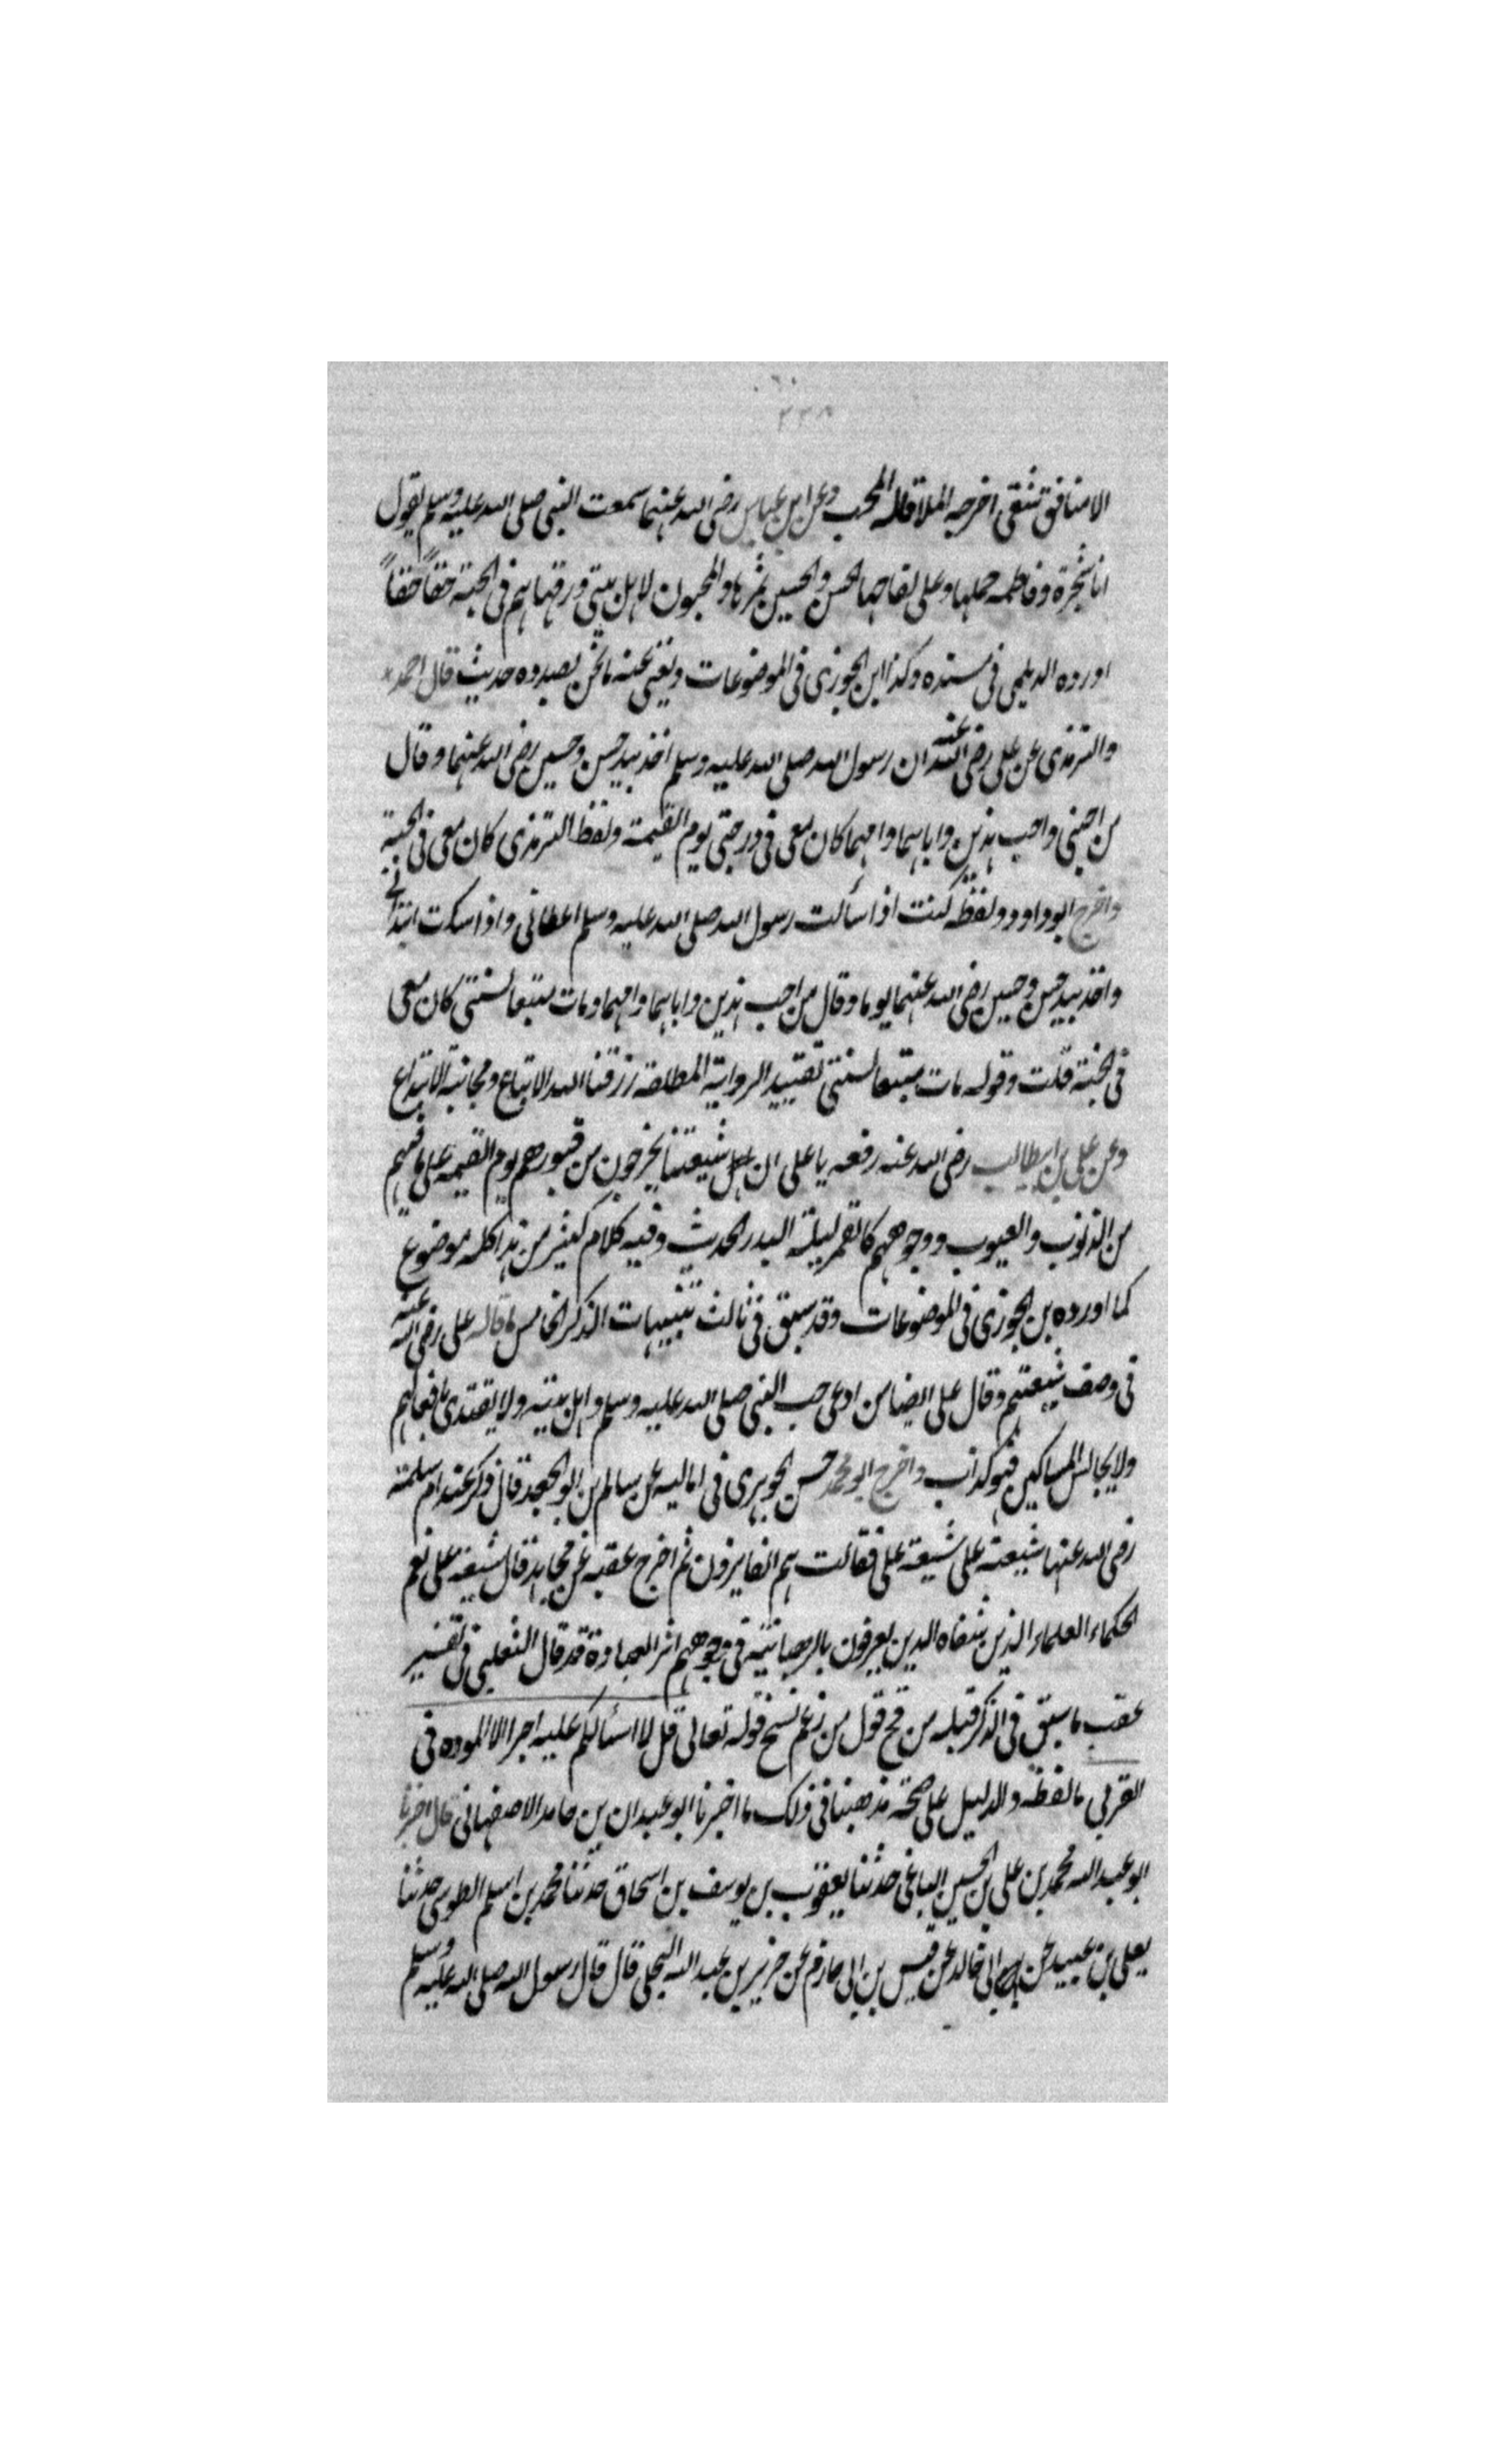 ٣٣٨
الا منافق شقى اخرجه الملا قاله المحب وعن ابن عباس رضى الله عنهما سمعت النبى صلى الله عليه وسلم يقول
انا شجرة وفاطمه حملها وعلى لقاحها الحسن والحسين ثمرها والمحبون لاهل بيتى ورقها هم فى الجنة حقاً حقاً
اورده الديلمى فى مسنده وكذا ابن الجوزى فى الموضوعات ويغنى عنه ما نحن بصدده حديث قال احمد
والترمذى عن على رضى الله عنه ان رسول الله صلى الله عليه وسلم اخذ بيد حسن وحسين رضى الله عنهما وقال
من احبنى واحب هذين واباهما وامهما كان معى فى درجتى يوم القيمة ولفظ الترمذى كان معى فى الجنة
واخرج ابو داود ولفظه كنت اذا سألت رسول الله صلى الله عليه وسلم اعطانى واذا سكت ابتدانى
واخذ بيد حسن وحسين رضى الله عنهما يوما وقال من احب هذين واباهما وامهما ومات متبعا لسنتى كان معى
فى الجنة قلت وقوله مات متبعا لسنتى تقييد الرواية المطلقة رزقنا الله الاتباع ومجانبة الابتداع
وعن على بن ابيطالب رضى الله عنه رفعه يا على ان اهل شيعتنا يخرجون من قبورهم يوم القيمه على ما فيهم
من الذنوب والعيوب ووجوههم كالقمر ليلة البدر الحديث وفيه كلام كثير من هذا كله موضوع
كما اورده بن الجوزى فى الموضوعات وقد سبق فى ثالث تنبيهات الذكر الخامس ما قاله على رضى الله عنه
فى وصف شيعتهم وقال على ايضا من ادعى حب النبى صلى الله عليه وسلم واهل بيته ولا يقتدى بافعالهم
ولا يجالس المساكين فهو كذاب واخرج ابو محمد حسن الجوهرى فى اماليه عن سالم بن ابو الجعد قال ذكر عند ام سلمة
رضى الله عنها شيعة على شيعة على فقالت هم الفايزون ثم اخرج عقبه عن مجاهد قال شيعة على نعم
الحكماء العلماء الذين شفاه الدين يعرفون بالرهبانية فى وجوههم اثر العبادة قد قال الثعلبى فى تفسير
عقب ما سبق فى الذكر قبله من قبح قول من زعم نسخ قوله تعالى قل لا اسئالكم عليه اجرا الا الموده فى
القربى ما لفظه والدليل على صحة مذهبنا فى ذلك ما اخبرنا ابو عبدان بن حامد الاصفهانى قال اخبرنا
ابو عبد الله محمد بن على بن الحسين الباغى حدثنا يعقوب بن يوسف بن اسحاق حدثنا محمد بن اسلم الطوسى حدثنا
يعلى بن عبيد عن ابى خالد عن قيس بن ابى حازم عن جرير بن عبد الله البجلى قال قال رسول الله صلى الله عليه وسلم